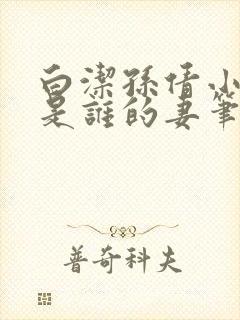 白潔孫倩小
是誰的妻筆
普奇科夫